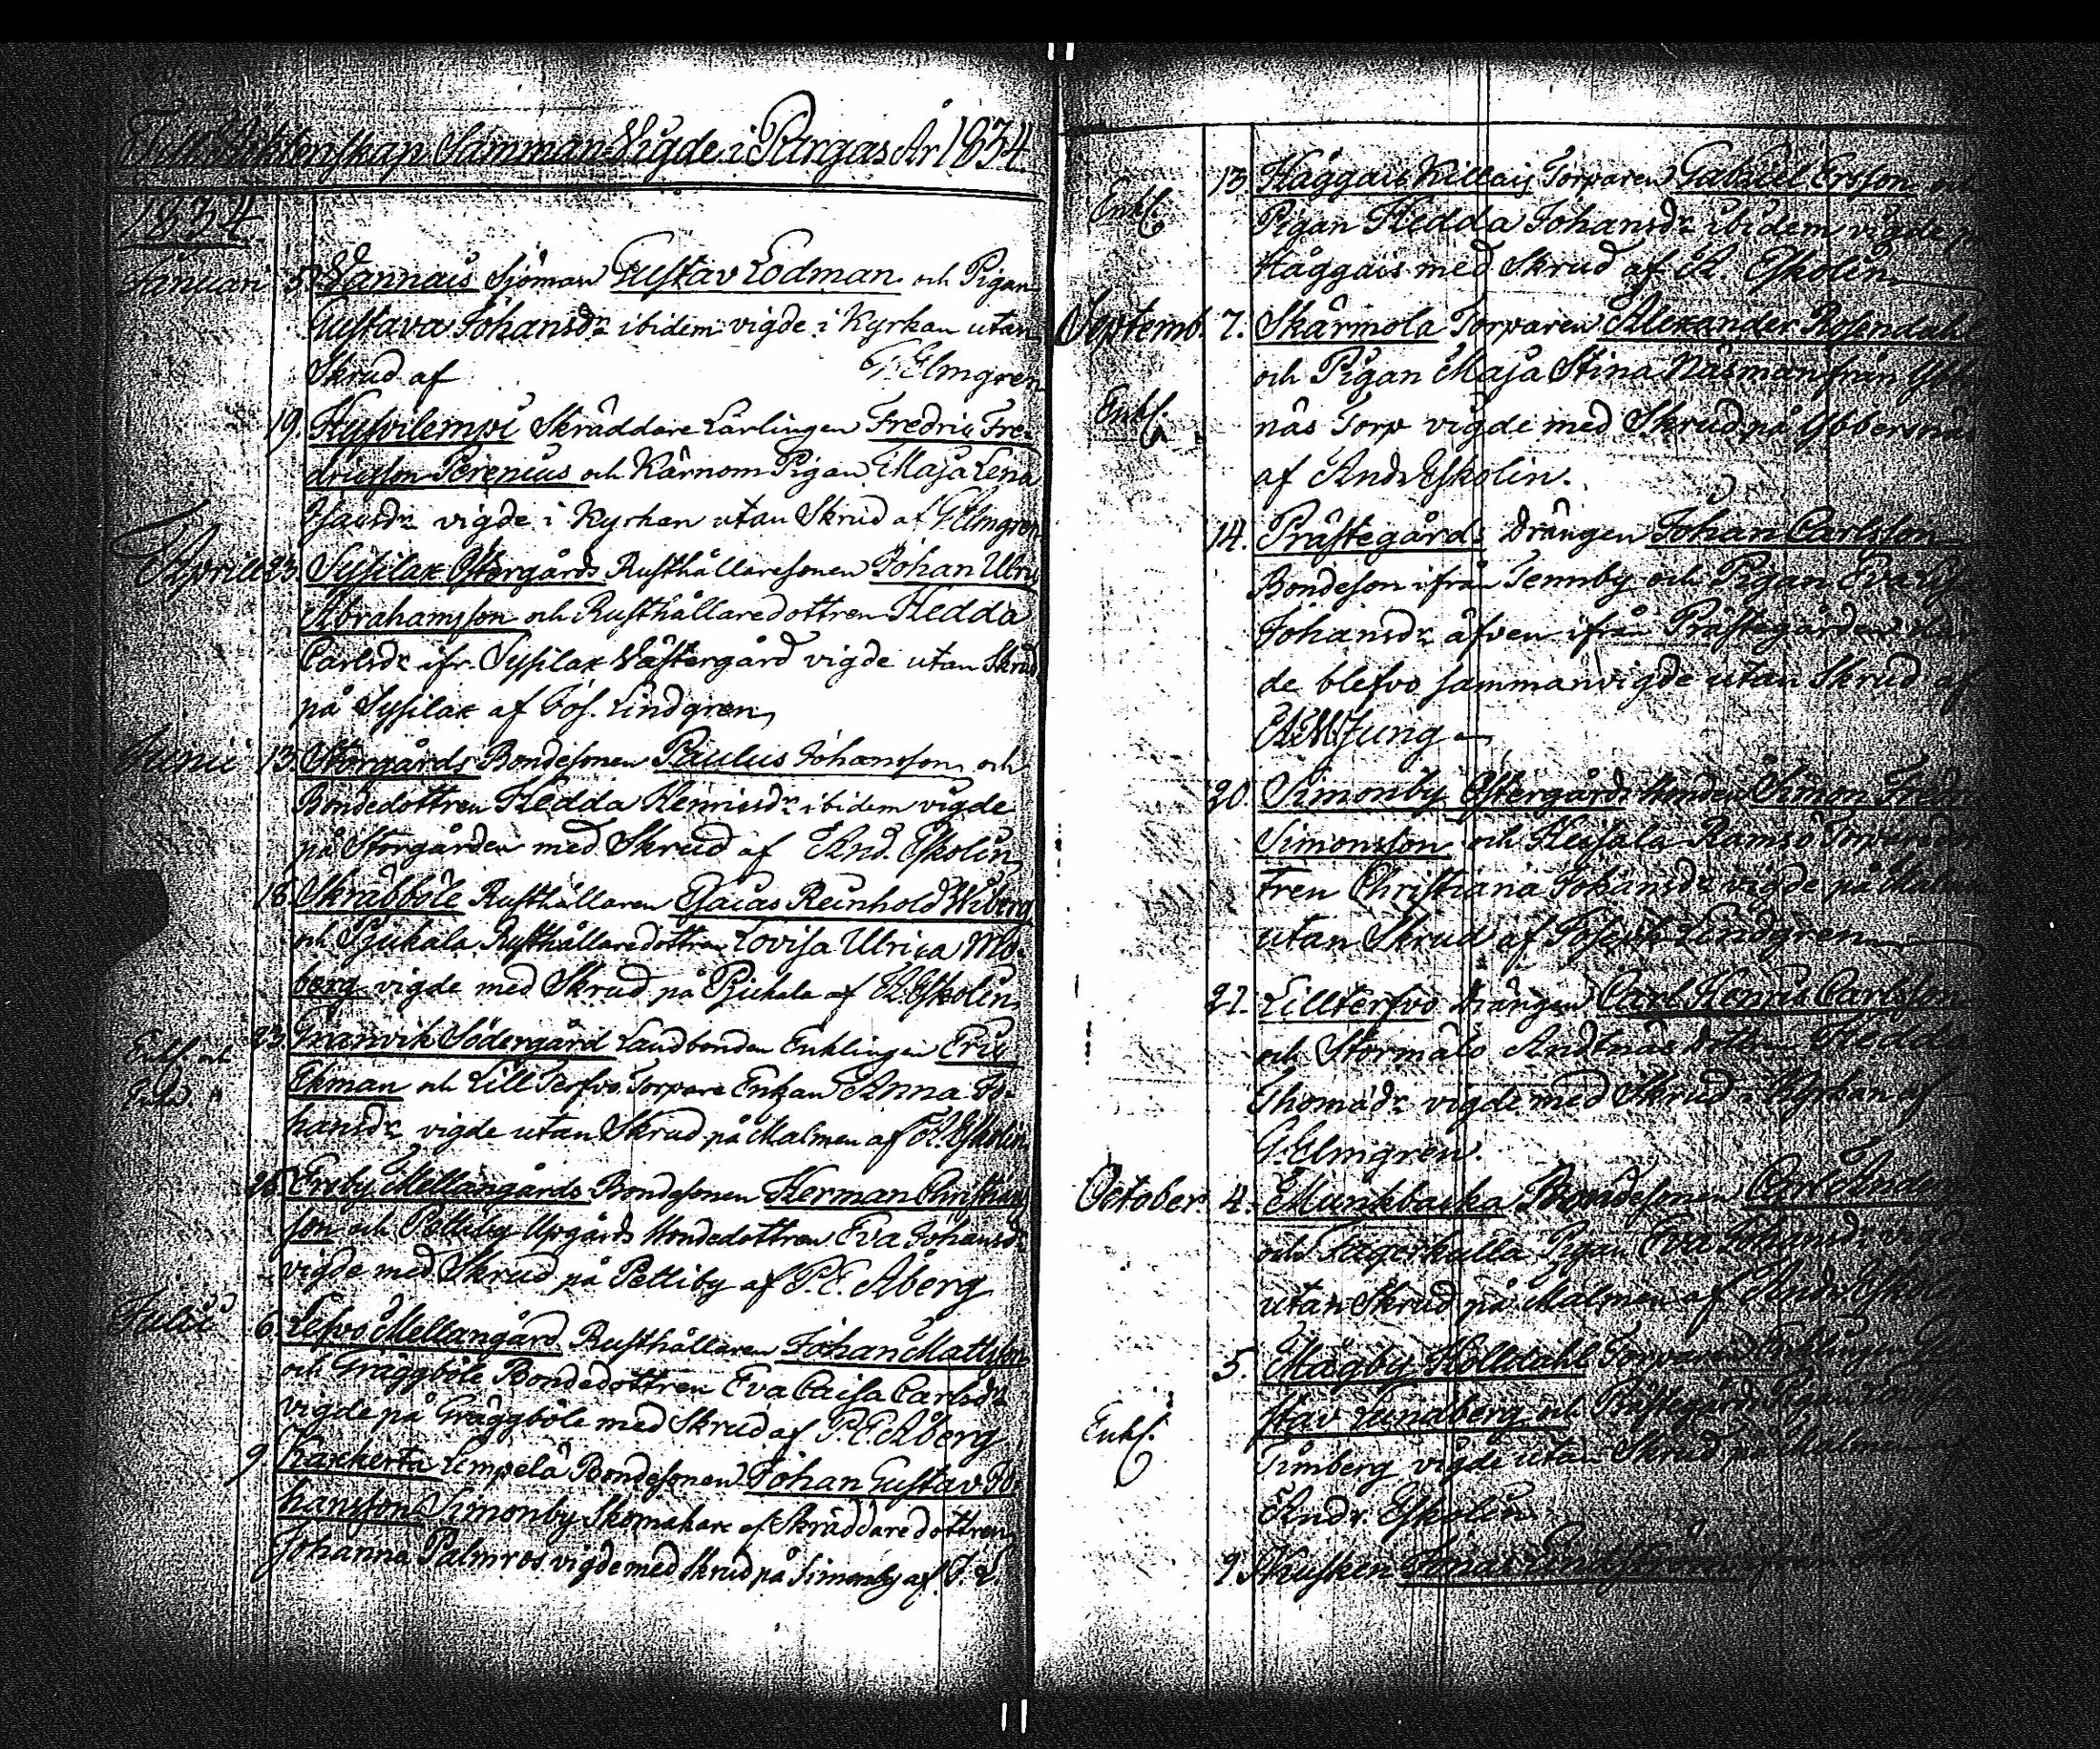 Till Äktenskap Samman Vigde i Pargas År 1834
1834
Januari 5. Vannais Sjöman Gustav Lodman och Pigan
Gustava Johansdr ibidem vigde i Kyrkan utan
Skrud af G. Elmgren
19. Hysvilempi Skräddare Lärlingen Fredric Fre-
dricsson Serenius och Kärnom Pigan Maja Lena
Isacsdr vigde i Kyrkan utan Skrud af G. Elmgren
Aprill 23. Sysilax Östergårds Rusthållaresonen Johan Ulric
Abrahamsson och Rusthållaredottren Hedda
Carlsdr ifr. Sysilax Västergård vigde utan Skrud
på Sysilax af Jos. Lindgren
Junii 13. Storgårds Bondesonen Paulus Johansson och
Bondedottren Hedda Henricsdr ibidem vigde
på Storgården med Skrud af And. Eskolin
18. Skräbböle Rusthållaren Esaias Reinhold Wiberg
och Pjukala Rusthållaredottren Lovisa Ulrica Mo-
berg vigde med Skrud på Pjukala af A. Eskolin
Enkl. och 23. Granvik Södergård Landbonden Enklingen Eric
Ekman och Lill Terfvo Torpare Enkan Anna Jo-
hansdr vigde utan Skrud på Malmen af A. Eskolin
26. Ersby Mellangårds Bondesonen Herman Christians
son och Pettiby Upgårds Bondedottren Eva Johansdr
vigde med Skrud på Pettiby af P. E. Åberg
Julii 6. Lefvo Mellangård Rusthållaren Johan Mattsson
och Gräggböle Bondedottren Eva Caisa Carlsdr
vigde på Gräggböle med Skrud af P. E. Åberg
9. Kaxkerta Lempelä Bondesonen Johan Gustav Jo-
hansson Simonby Skomakare of Skräddaredottren
Johanna Palmros vigde med Skrud på Simonby af J. L.
Enkl. 13. Häggais Killais Torparen Gabriel Ersson och
Pigan Hedda Johansdr ibidem vigde
Häggais med Skrud af A. Eskolin
Septemb. 7. Skärmola Torparen Alexander Rosendahl
och Pigan Maja Stina Näsman från
Enkl. näs Torp vigde med Skrud på Ybbersnäs
af Andr Eskolin.
14. Prästegårds Drängen Johan Carlsson
Bondeson ifrån Tennby och Pigan Eva
Johansdr äfven ifrån Prästegården
de blefvo sammanvigde utan Skrud af
Ljung
20. Simonby Östergårds Simon Fredr
Simonsson och Heisala Ramsö
tren Christiana Johansdr vigde på
utan Skrud af Joseph Lindgren
21. Lillterfvo Drängen Carl Henric Carlsson
och Stormälö Andtnäs dottren Hedda
Thomasdr vigde med Skrud i Kyrkan af
G. Elmgren.
October 4. Munkbacka Bondesonen Carl
och Lagerkulla Pigan Eva Johansdr
utan Skrud på Malmen af Andr. Eskolin
5. Mågby Torparen Enklingen
Enkl. stav Lundberg och Prästegårds Pigan
Timberg vigde utan Skrud på Malmen
Andr. Eskolin
9. Kusken